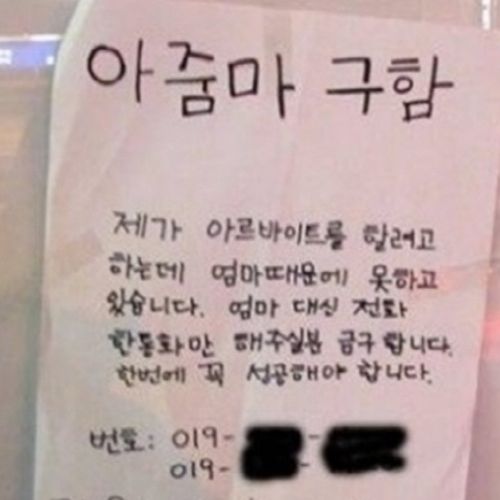 아줌마 구함
제가 아르바이트를 할려고
하는데 엄마때문에 못하고
있습니다. 엄마 대신 전화
한통화만 해주실분 급구 합니다.
한번에 꼭 성공해야 합니다.
번호: 019-
019-